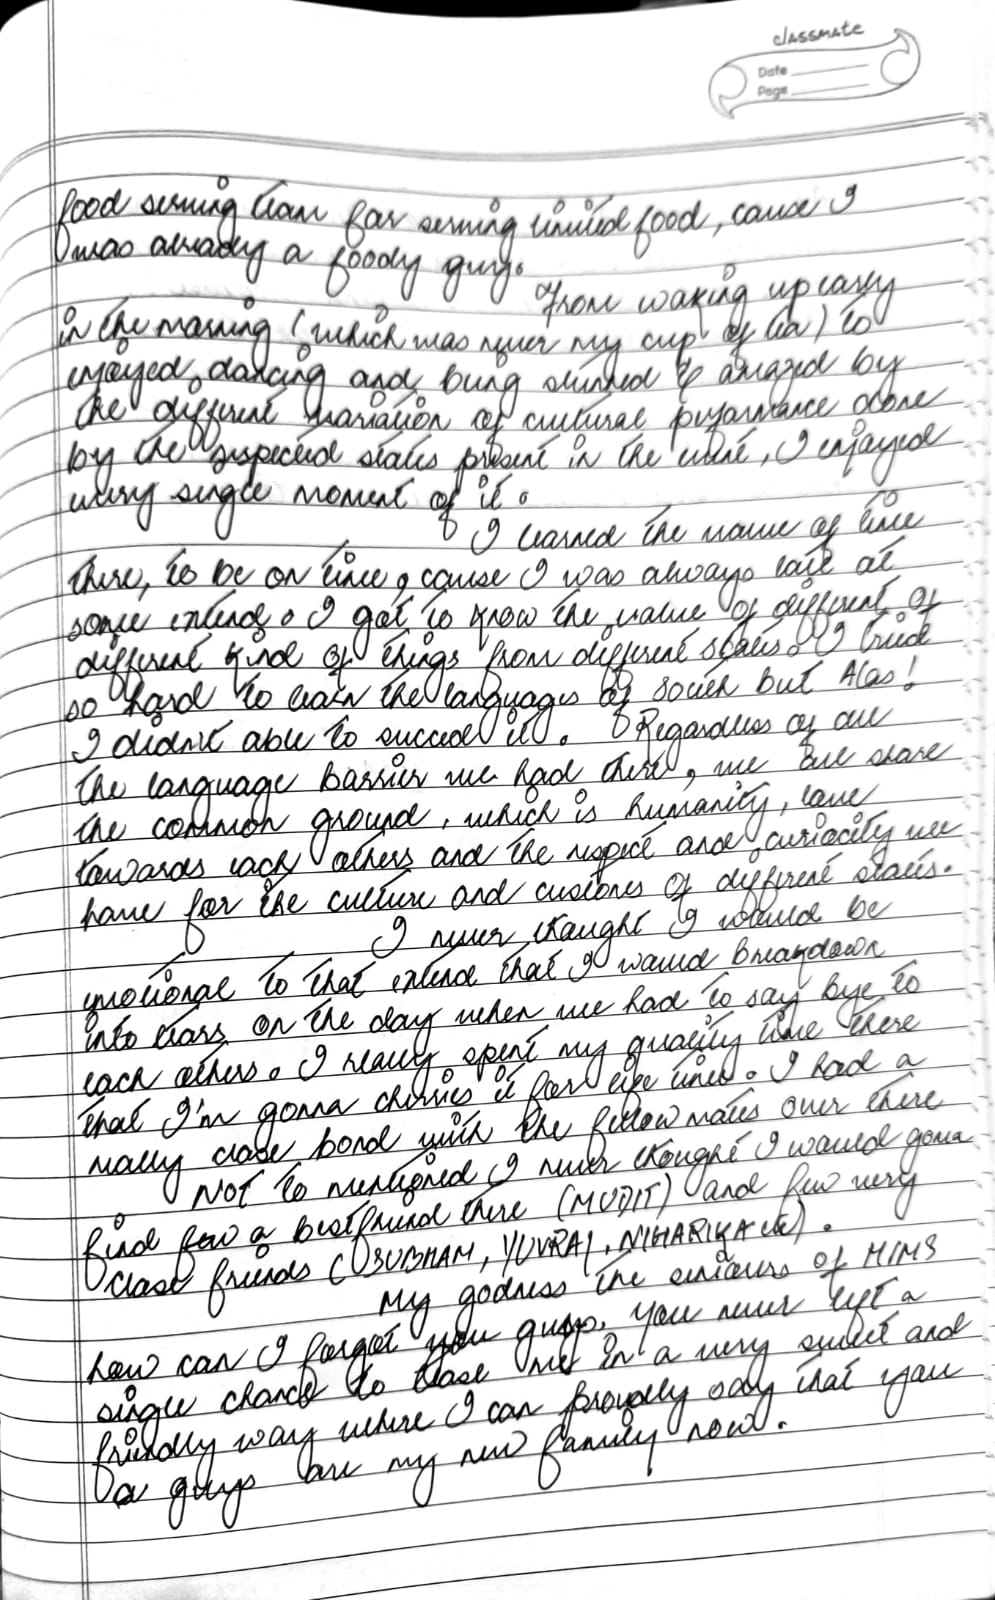 classmate
Date
Page
food serving team for serving limited food, cause I
was already a foody guy.
From waking up early
in the morning (which was never my cup of tea) to
enjoyed, dancing and being stunned & amazed by
the different variation of cultural performance done
by the respected states present in the event, I enjoyed
every single moment of it.
I learned the value of time
there, to be on time, cause I was always late at
some extend. I got to know the value of different of
different kind of things from different states. I tried
so hard to learn the languages of south but Alas!
I didn't able to succeed it. Regardless of all
the language barrier we had there, we all share
the common ground, which is humanity, love
towards each others and the respect and curiocity we
have for the culture and customs of different states.
I never thought I would be
emotional to that extend that I would breakdown
into tears on the day when we had to say bye to
each others. I really spent my quality time there
that I'm gonna cherries it for life time. I had a
really close bond with the fellow mates over there
Not to mentioned I never thought I would gonna
find a bestfriend there (MUDIT) and few very
close friends (SUBHAM, YUVRAJ, NIHARIKA etc).
My godness the seniours of HIMS
how can I forget you guys. You never left a
single chance to tease me in a very sweet and
friendly way where I can proudly say that you
guys are my new family now.